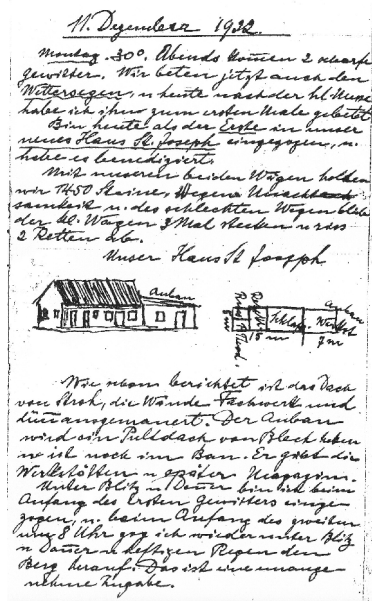 11. Dezember 1932
Montag. 30°. Abends kommen 2 scharfe
gewitter. Wir beten jetzt auch den
Wettersegen, u heute nach der hl. Messe
habe ich ihn zum ersten Male gebetet.
Bin heute als der Erste in unser
neues Haus St. Joseph eingezogen, u.
habe es benediziert.
Mit unseren beiden Wagen holden
wir 1450 Steine, wegen
samkeit u. des schlechten Wegen blieb
der kl. Wagen 3 Mal stecken u riss
2 Ketten ab.
Unser Haus St Joseph
Anbau
Anbau
Schlafz. Werkst
15 m 7 m
Wie schon berichtet ist das Dach
von Stroh, die Wände Fachwerk und
dünn ausgemauert. Der Anbau
wird ein Pultdach von Blech haben
u ist noch im Bau. Er gibt die
Werkstätten u später Magazin.
Unter Blitz u Donner bin ich beim
Anfang des Ersten Gewitters einge-
zogen, u. beim Anfang des zweiten
um 8 Uhr zog ich wieder unter Blitz
u Donner u heftigen Regen den
Berg herauf. Das ist eine unange-
nehme Zugabe.